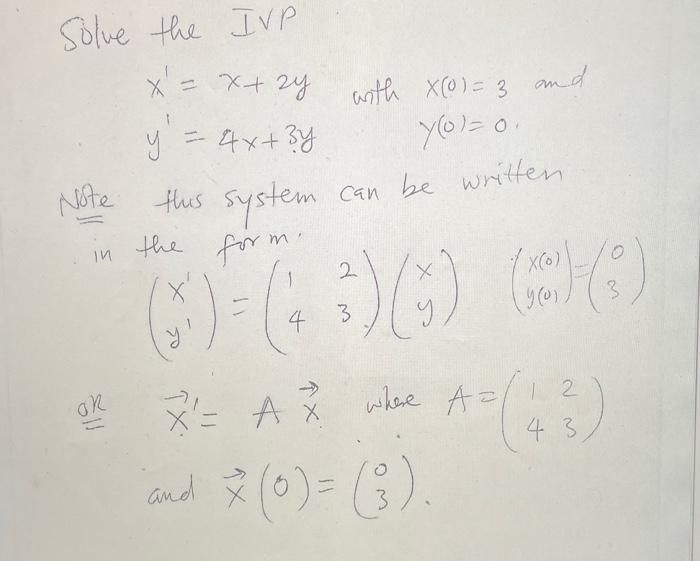 Solve the IVP
x' = x + 2y with x(0) = 3 and
y' = 4x + 3y y(0) = 0.
Note this system can be written
in the form.
(x' y') = (1 2 4 3) (x y) (x(0) y(0)) = (0 3)
OR x⃗' = A x⃗ where A = (1 2 4 3)
and x⃗(0) = (0 3).